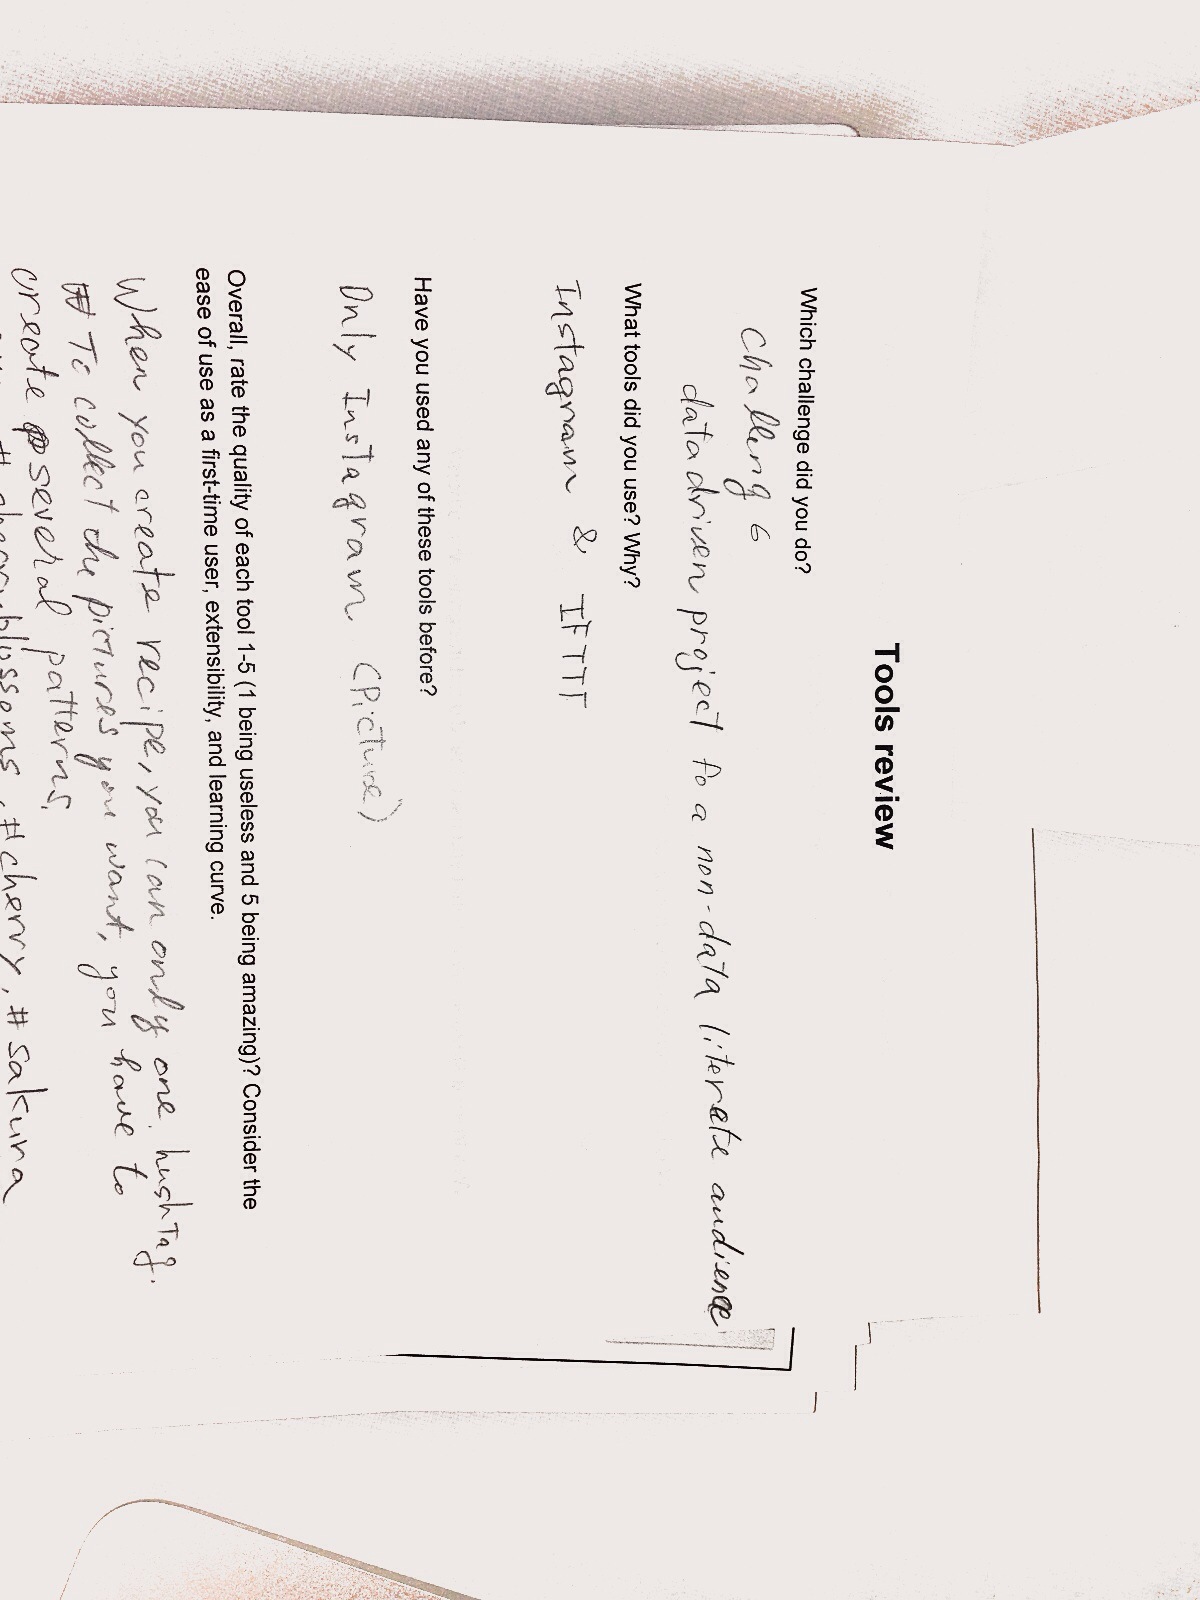 Tools review
Which challenge did you do?
Challeng 6
data driven project to a non-data literate audience
What tools did you use? Why?
Instagram & IFTTT
Have you used any of these tools before?
Only Instagram (Picture)
Overall, rate the quality of each tool 1-5 (1 being useless and 5 being amazing)? Consider the
ease of use as a first-time user, extensibility, and learning curve.
When you create recipe, you can only one hushTag.
To collect the pictures you want, you have to
create several patterns.
#cherryblossoms, #cherry, #sakura